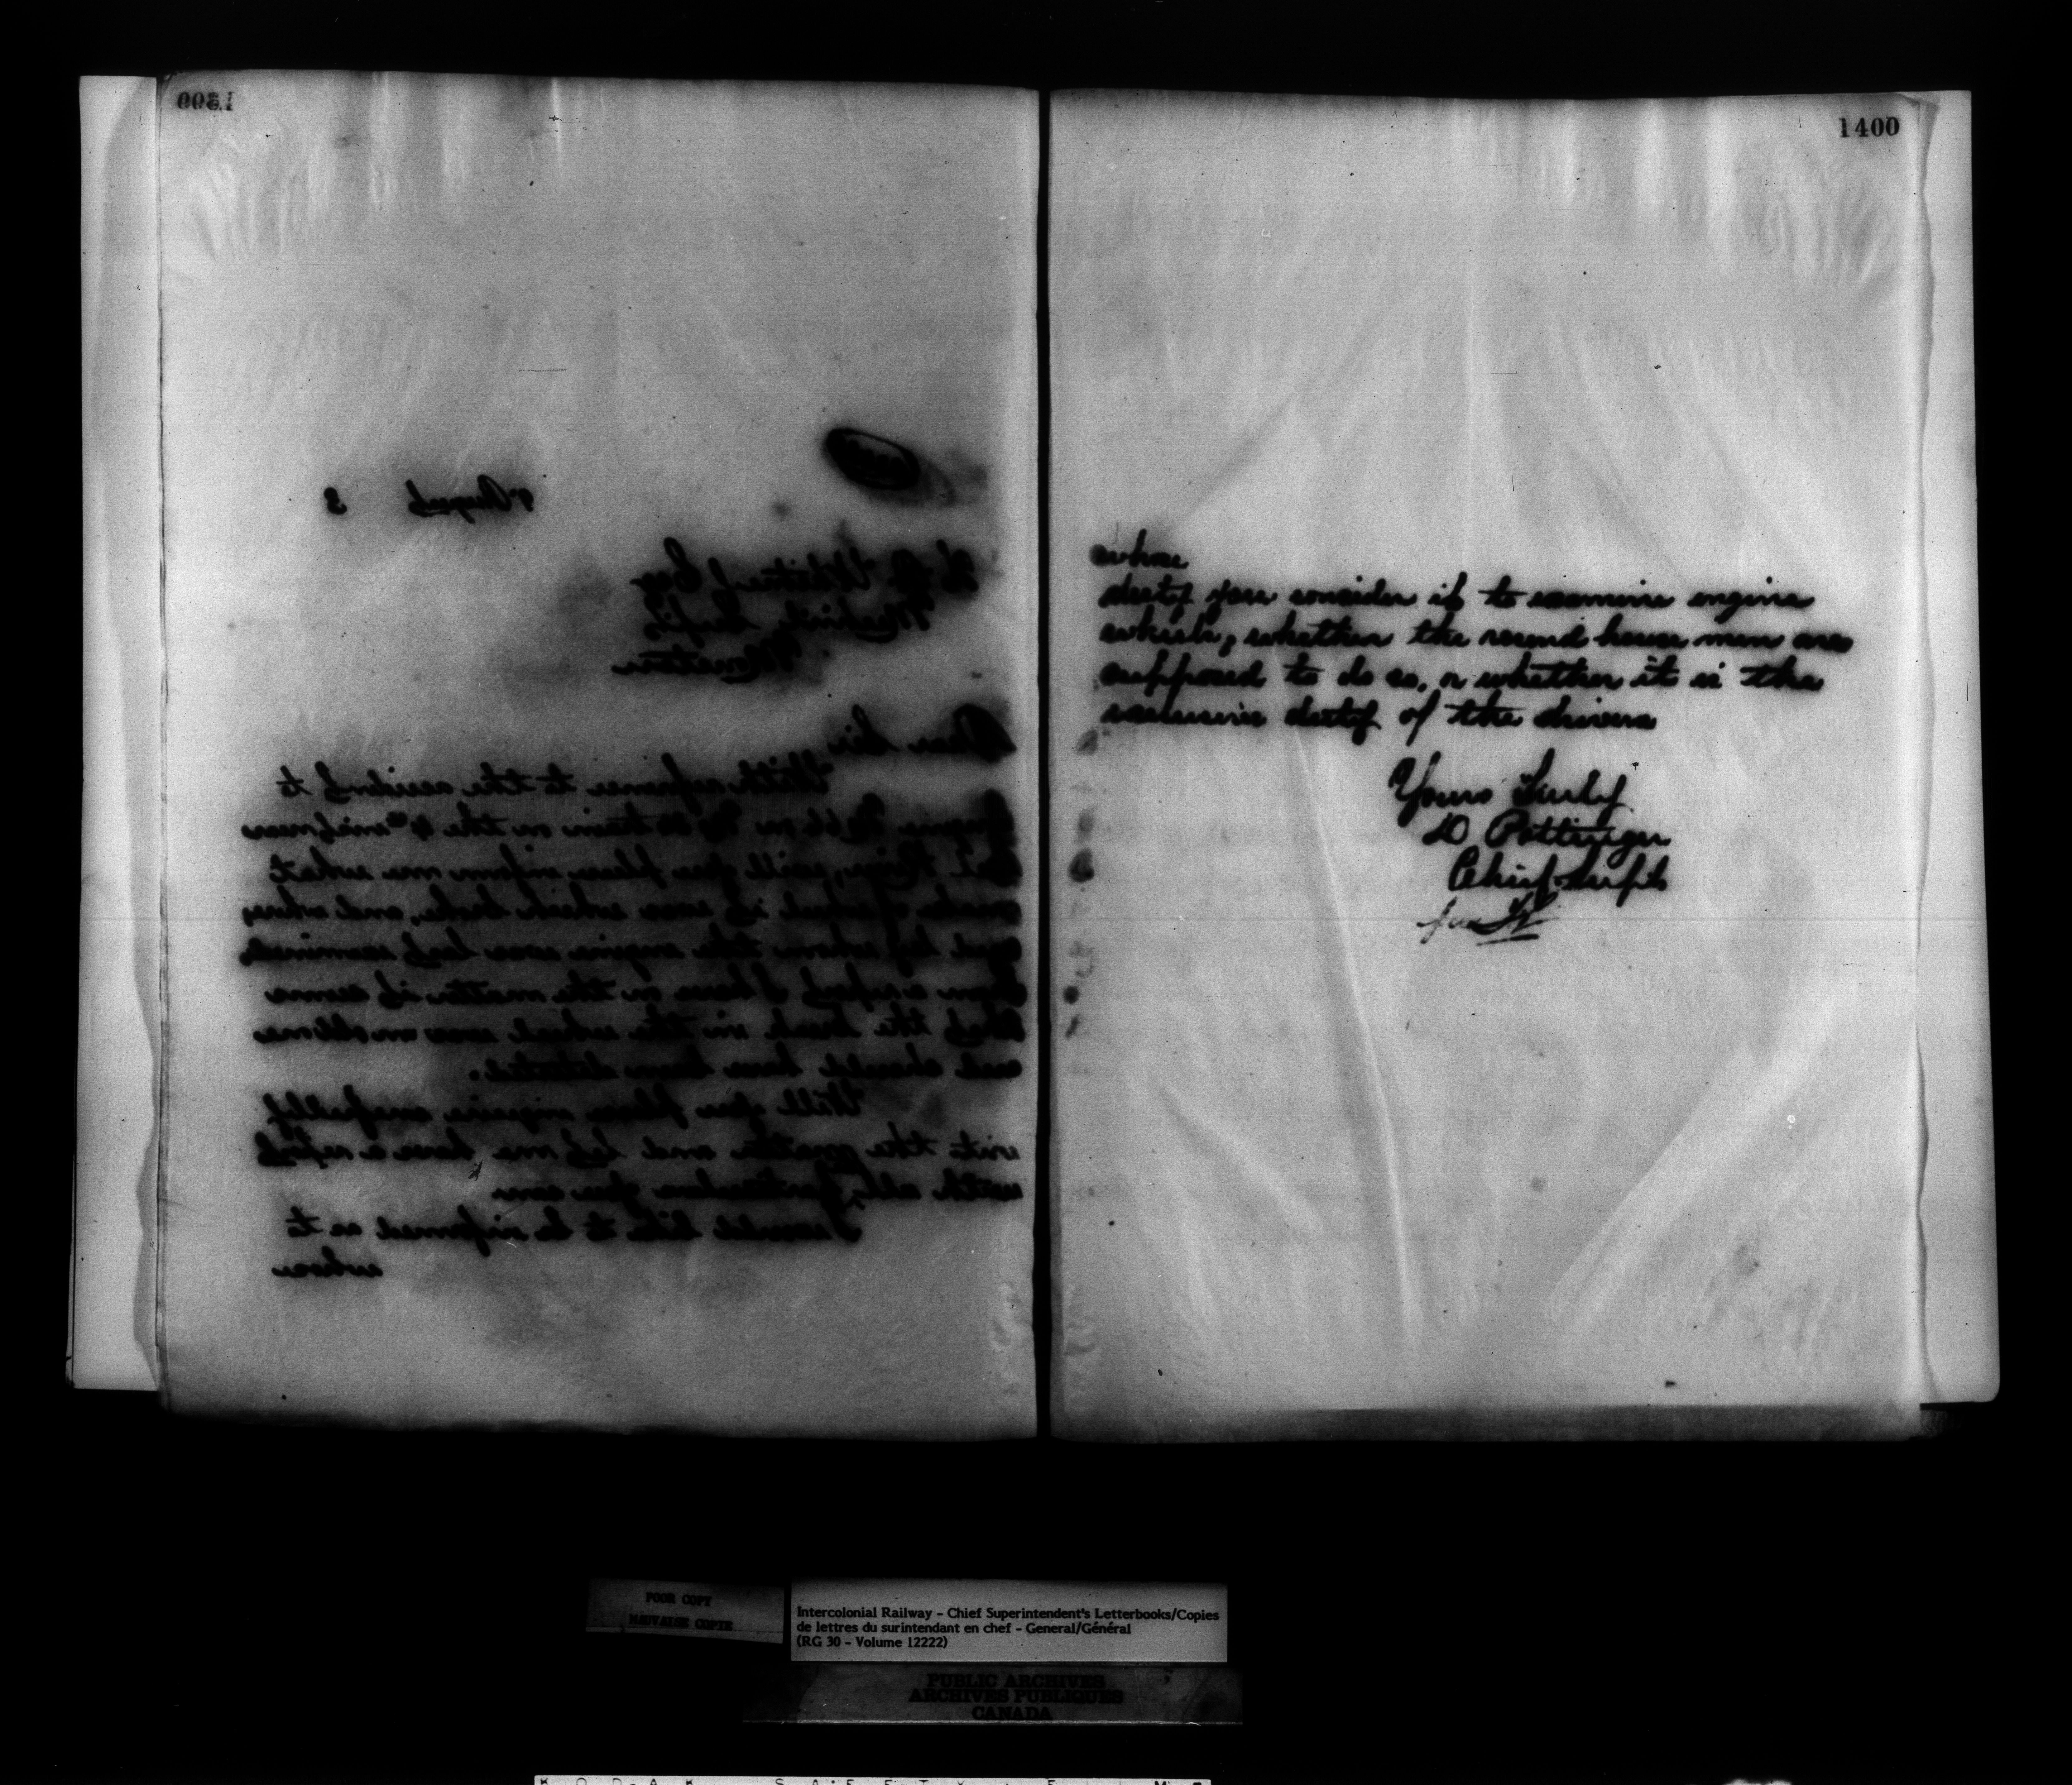 1399
9 August 3
H. A. Whitney Esq
Mechl Supt
Moncton
Dear Sir
With reference to the accident to
Engine No on No train on the 4th near
River, will you please inform me what
make of wheel it was which broke, and when,
and by whom the engine was last examined
From a report I have on the matter it seems
that the break in the wheel was an old one
and should have been detected.
Will you please inquire carefully
into the matter and let me have a report
with all particulars you can
I would like to be informed as to
whose
1400
whose
duty you consider it to examine engine
wheels, whether the round house men are
supposed to do so, or whether it is the
exclusive duty of the drivers
Yours Truly
D Pottinger
Chief Supt
POOR COPY
MAUVAISE COPIE
Intercolonial Railway - Chief Superintendent's Letterbooks/Copies
de lettres du surintendant en chef - General/Général
(RG 30 - Volume 12222)
PUBLIC ARCHIVES
ARCHIVES PUBLIQUES
CANADA